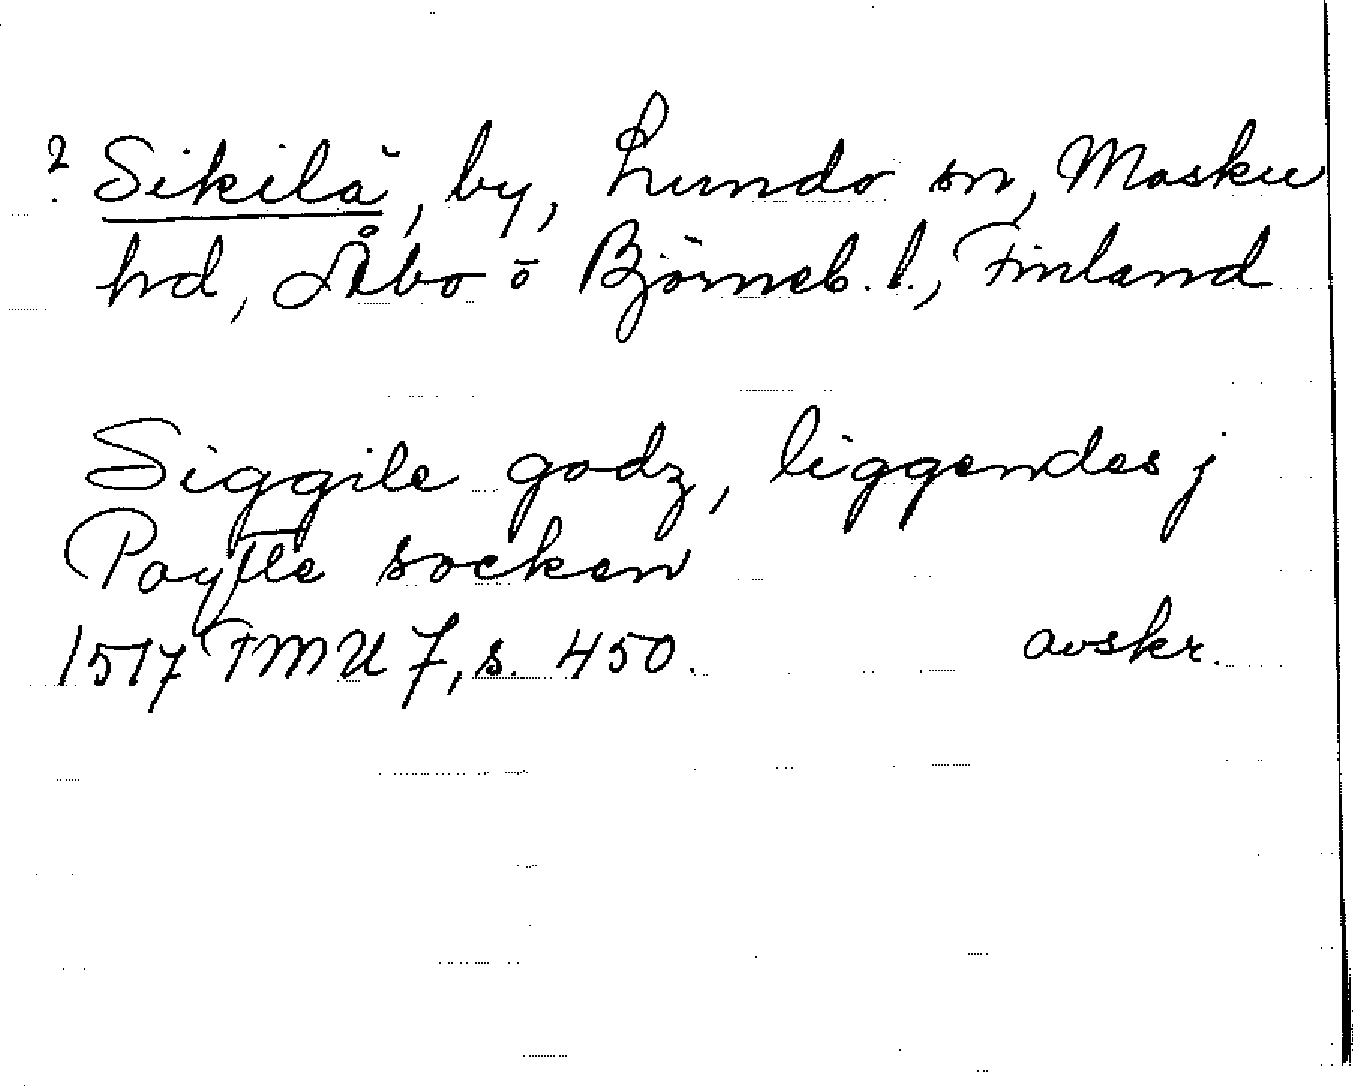 ? Sikilä, by, Lundo sn, Masku
hd, Åbo o Björneb. l., Finland
Siggile godz, liggendes j
Poytle socken
1517 FMU 7, s. 450. avskr.